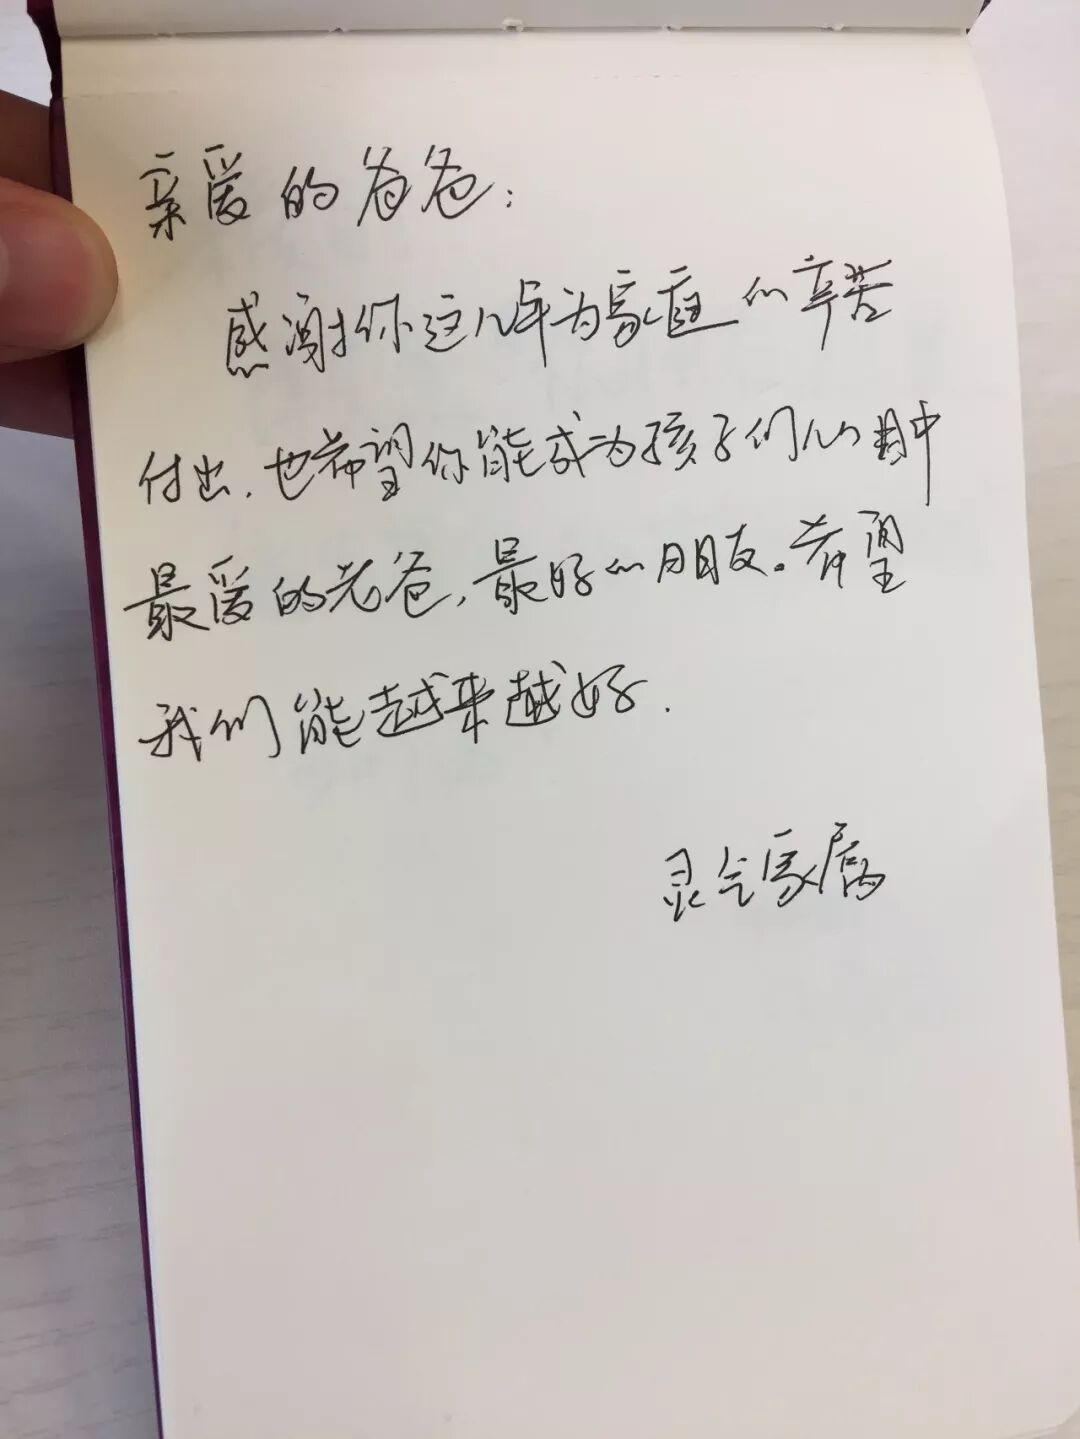 亲爱的爸爸：
感谢你这几年为家庭的辛苦
付出，也希望你能成为孩子们心目中
最爱的老爸，最好的朋友。希望
我们能越来越好.
灵气家属